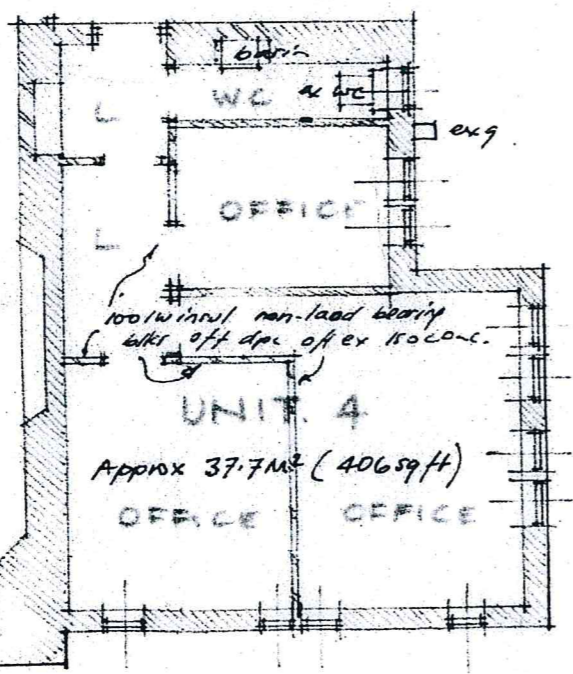 basin
WC ex wc
L
ex g
OFFICE
L
100 lw insul non-load bearing
blks off dpc off ex 150 conc.
UNIT. 4
Approx 37.7M² (406 sq ft)
OFFICE OFFICE